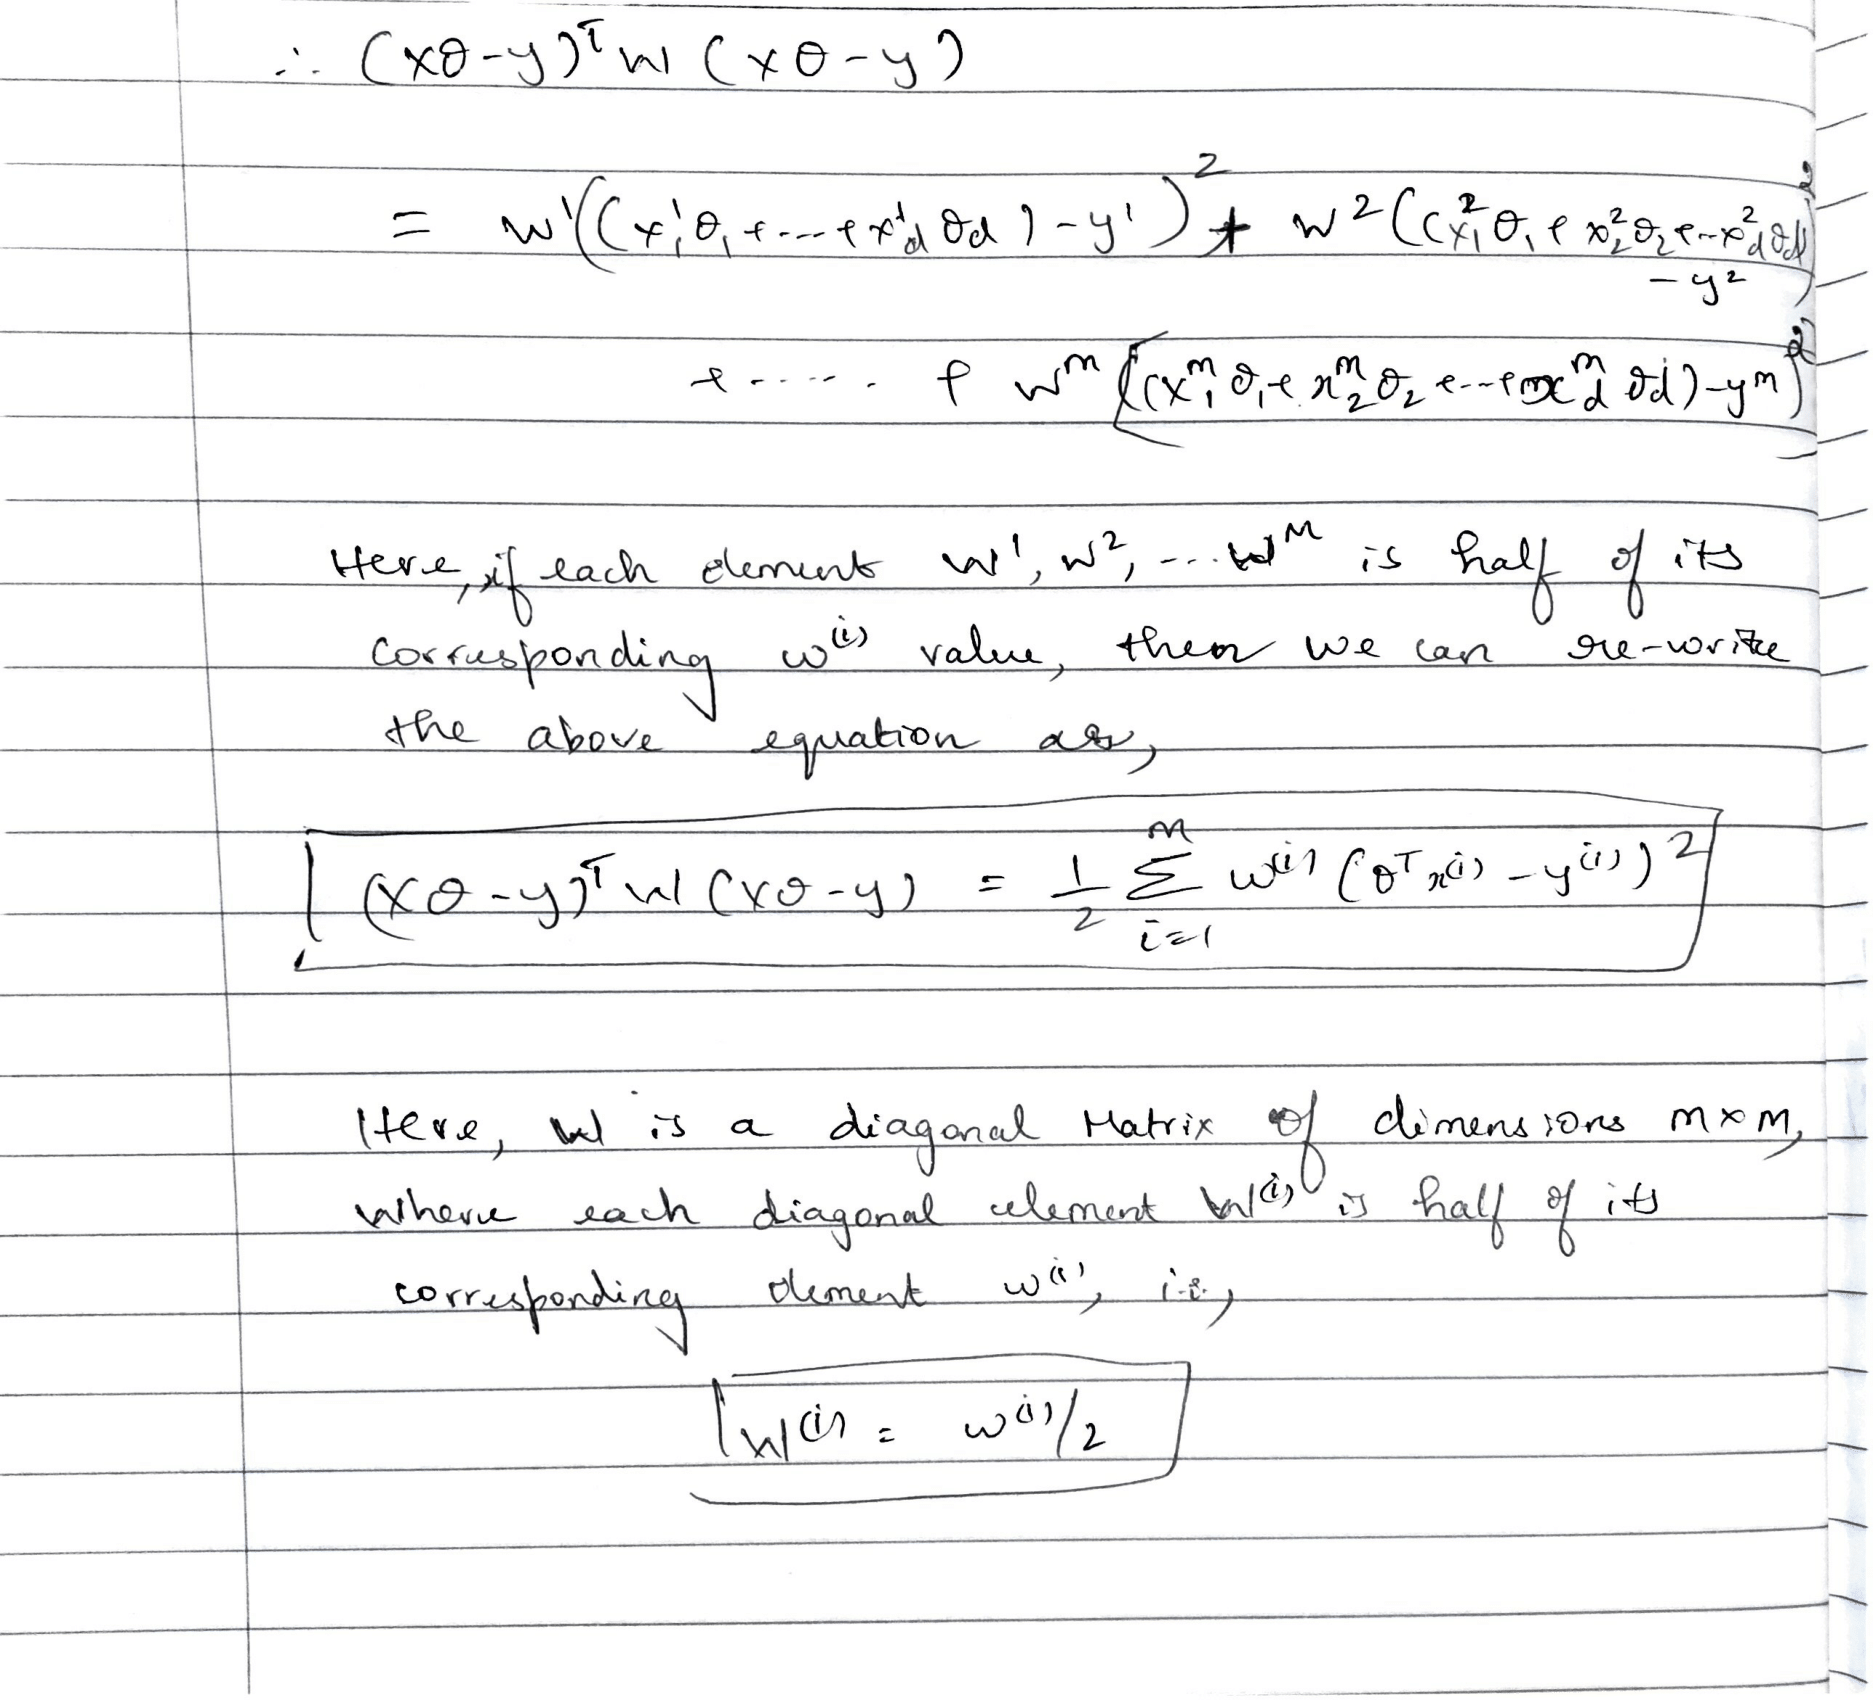 ∴ (Xθ-y)ᵀ W (Xθ-y)
= W¹((x₁¹θ₁ + --- + x_d¹ θd) - y¹)² + W²((x₁²θ₁ + x₂²θ₂ + -- x_d²θd)
- y²)²
+ ..... + Wᵐ [(x₁ᵐθ₁ + x₂ᵐθ₂ + -- + x_dᵐ θd) - yᵐ)²
Here, if each element W¹, W², ... Wᴹ is half of its
corresponding w⁽ⁱ⁾ value, then we can re-write
the above equation as,
(Xθ-y)ᵀ W (Xθ-y) = 1/2 Σ_{i=1}^{m} w⁽ⁱ⁾ (θᵀx⁽ⁱ⁾ - y⁽ⁱ⁾)²
Here, W is a diagonal Matrix of dimensions m×m,
where each diagonal element W⁽ⁱ⁾ is half of its
corresponding element w⁽ⁱ⁾, i.e,
W⁽ⁱ⁾ = w⁽ⁱ⁾/2